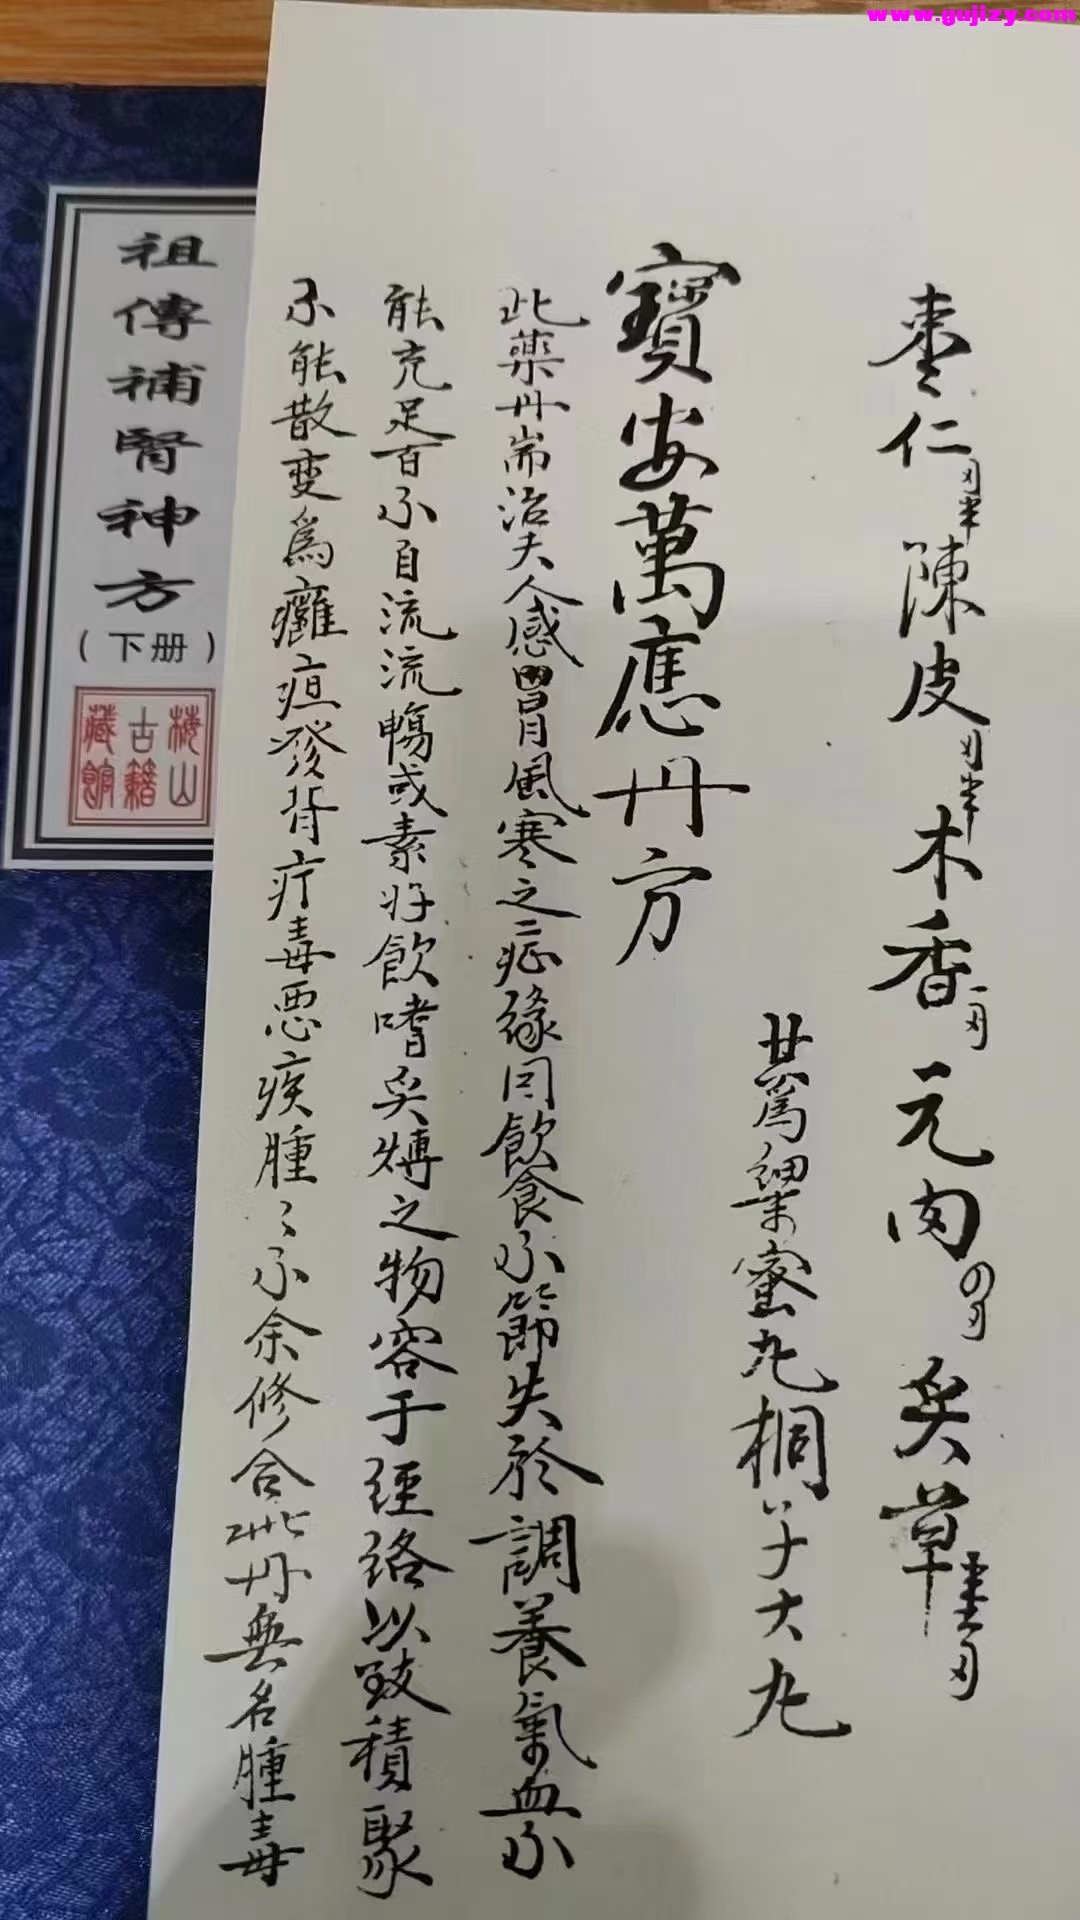 www.gujizy.com
棗仁刄半陳皮刄半木香一刄元肉〇刄炙草壹刄
共爲細末蜜丸桐子大丸
寶安萬應丹方
此藥丹耑治夫人感冒風寒之症緣因飲食不節失於調養氣血不
能充足百不自流流暢或素好飲嗜炙煿之物容于經絡以致積聚
不能散变爲癰疽發背疔毒悪疾腫〻不余修合此丹無名腫毒
祖傳補腎神方
（下册）
梅山
古籍
藏館